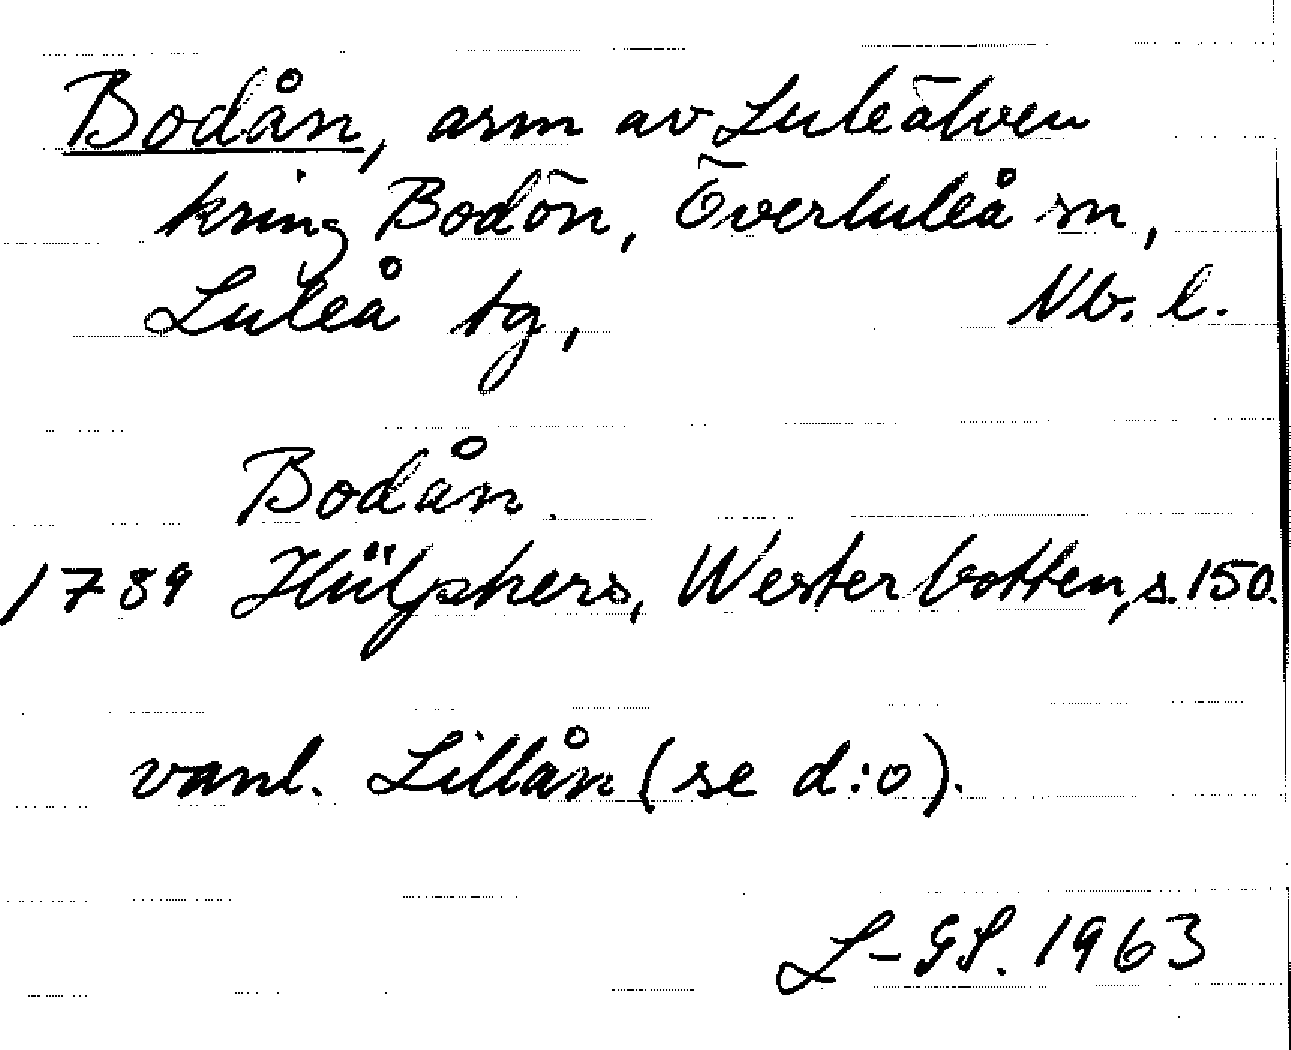 Bodån, arm av Luleälven
kring Bodön, Överluleå sn,
Luleå tg, Nb. l.
Bodån.
1789 Hülphers, Westerbotten, s. 150.
vanl. Lillån (se d:o).
L-GL. 1963